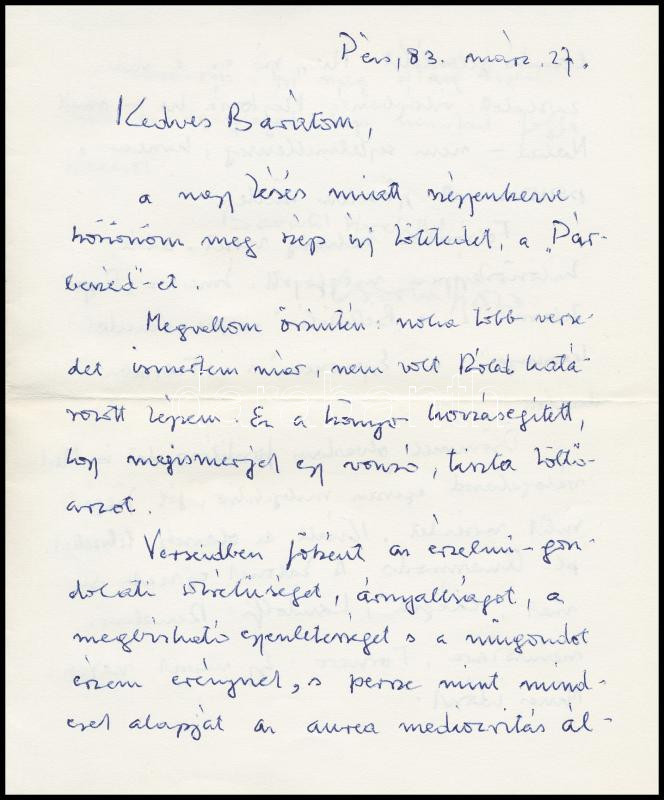 Pécs, 83. márc. 27.
Kedves Barátom,
a nagy késés miatt szégyenkezve
köszönöm meg szép új kötetedet, a „Pár-
beszéd"-et.
Megvallom őszintén: noha több verse-
det ismertem már, nem volt Rólad hatá-
rozott képem. Ez a könyv hozzásegített,
hogy megismerjek egy vonzó, tiszta költő-
arcot.
Verseidben főként az érzelmi-gon-
dolati sűrűséget, árnyaltságot, a
megbízható egyenletességet s a műgondot
érzem erénynek, s persze mint mind-
ezek alapját az aurea mediocritas ál-